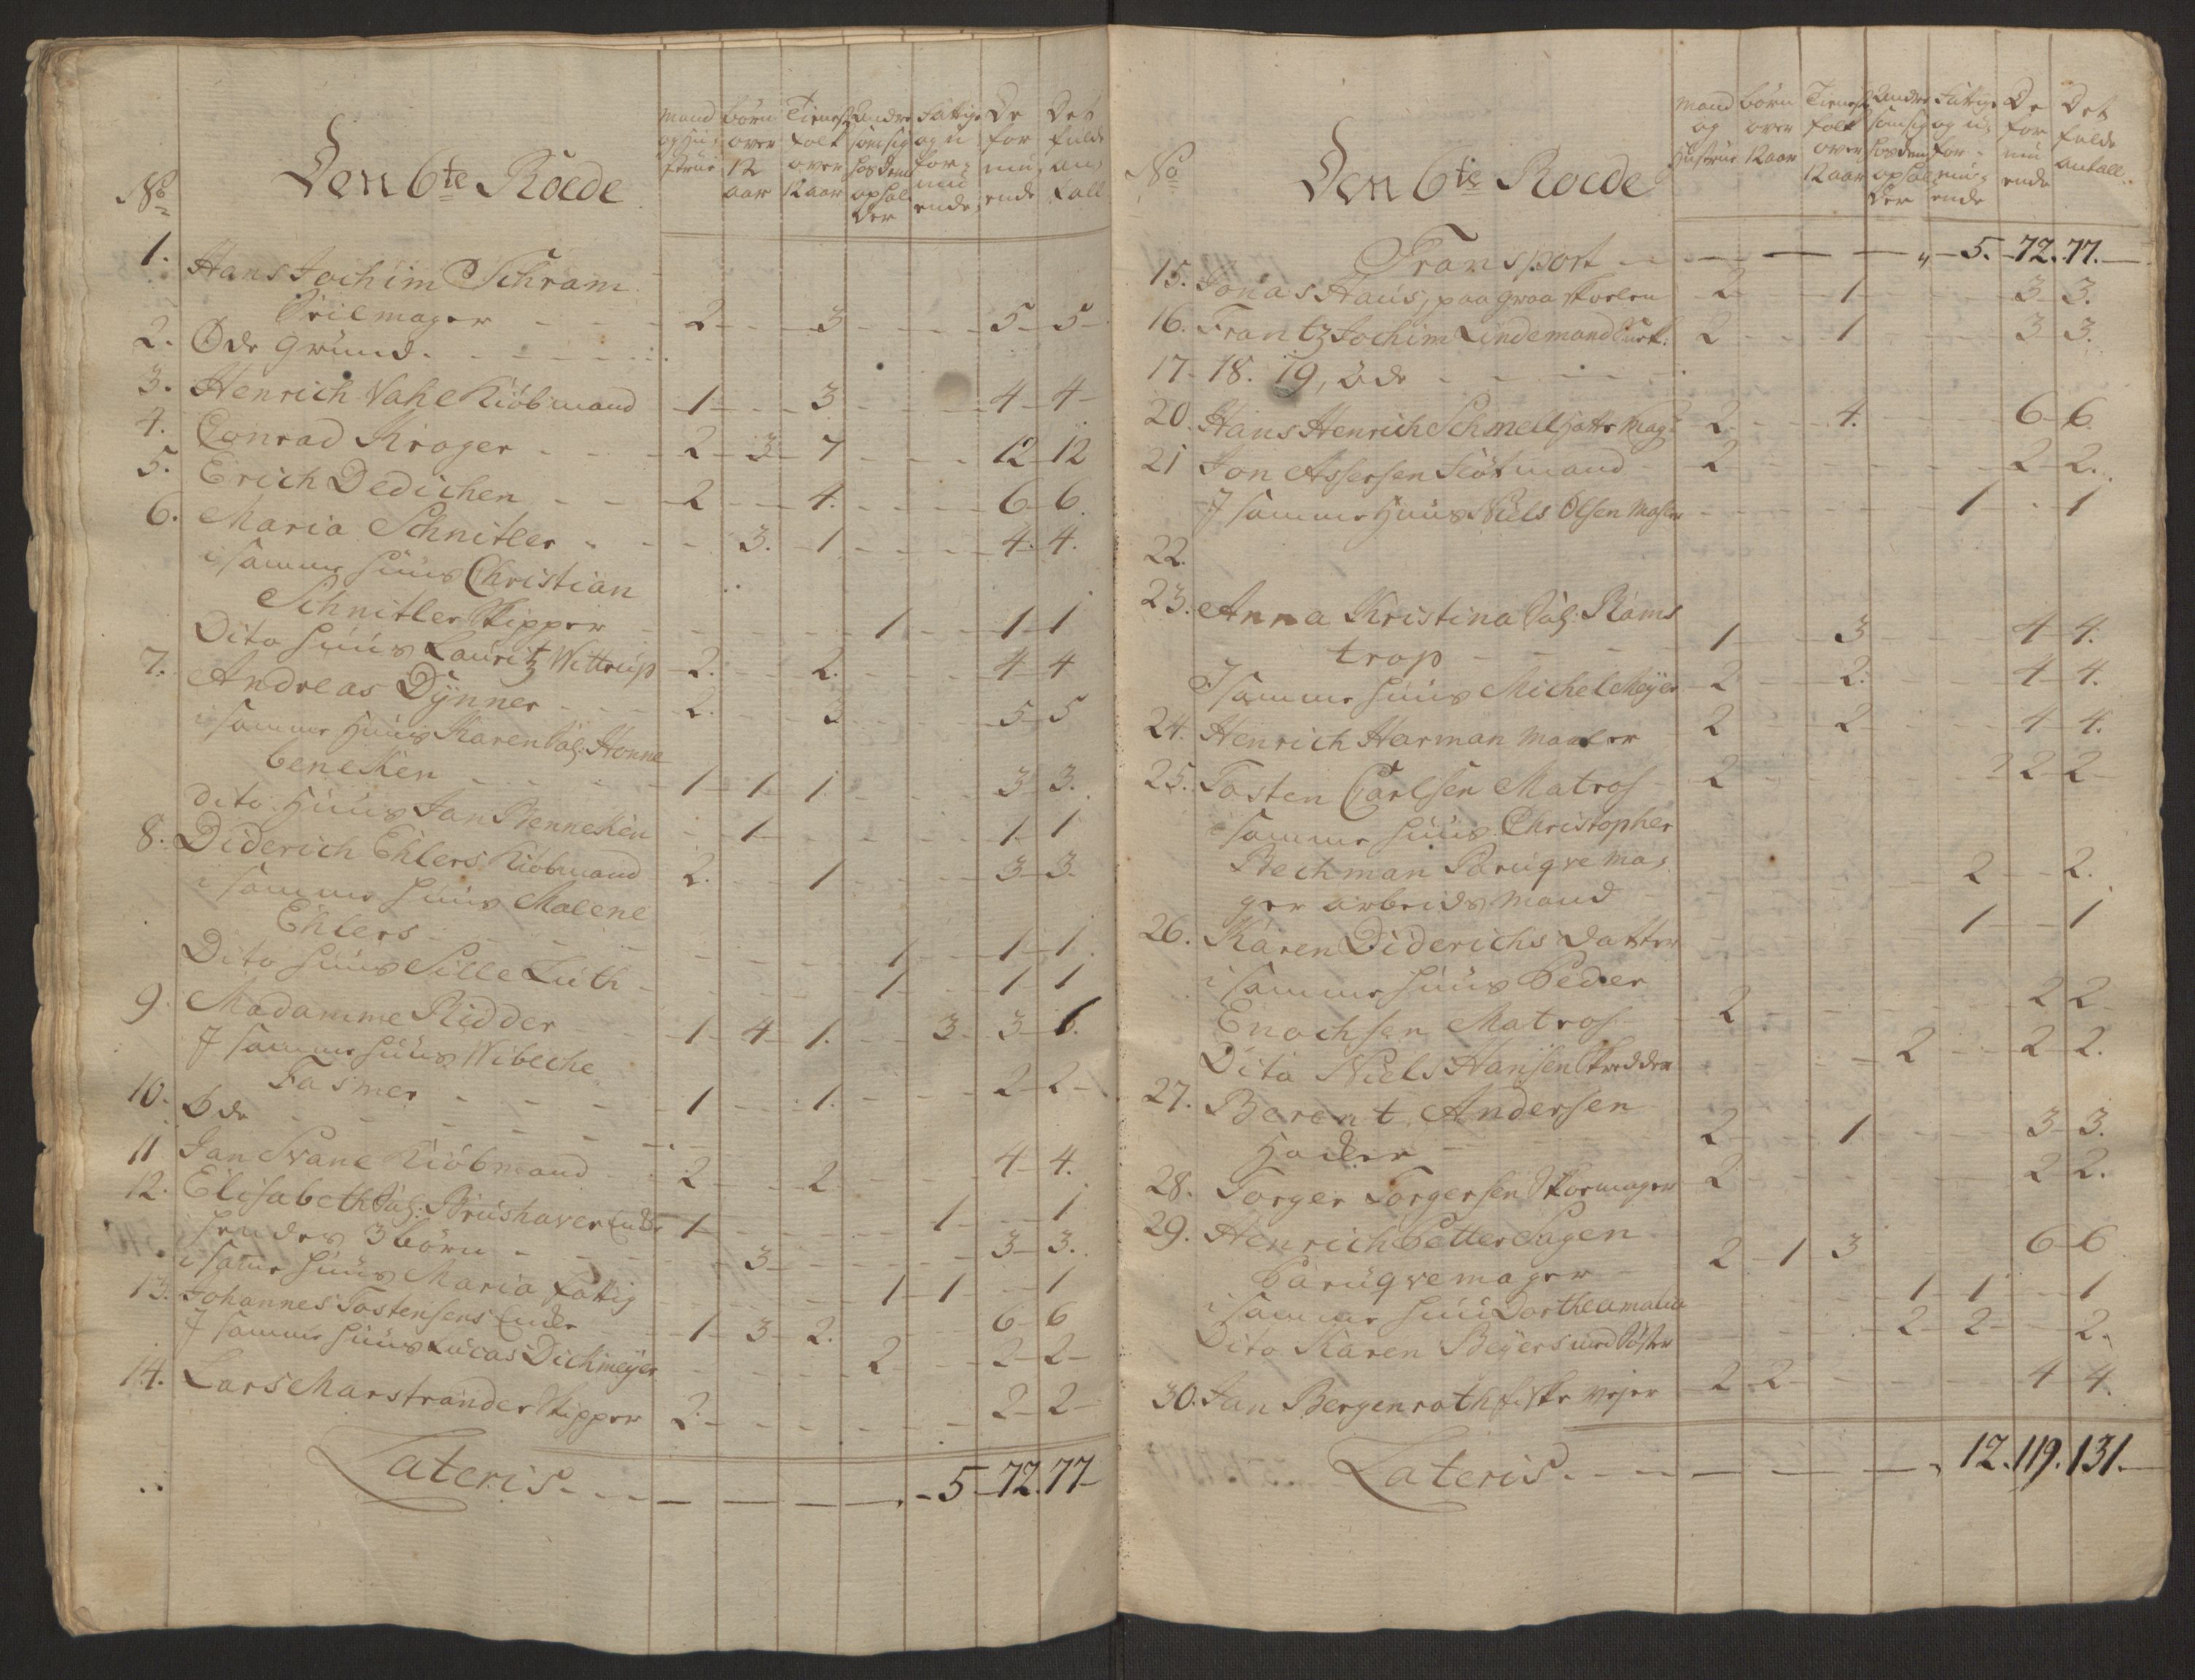 No
Den 6te Roede
mand og Hustrue
børn over 12 aar
Tieneste folk over 12 aar
Andre som sig hos dem opholder
Fattige og u formuende
De formuende
Det fulde antall
1. Hans Jochim Schram
Seilmager - - - 2 - - 3 - - - 5 - 5 -
2. Øde Grund
3. Henrich Vahl Kiøbmand 1 - - 3 - - - 4 - 4 -
4. Conrad Kroger - - - 2 - 3 - 7 - - - 12 - 12
5. Erich Dedichen - - 2 - - 4. - - - 6 - 6.
6. Maria Schnitler - - - 3. - 1 - - - 4. 4.
i samme huus Christian
Schnitler Skipper - - - - 1 - - 1 - 1
Dito huus Lauritz Wittrup - 2. - - 2. - - 4 - 4
7. Andreas Dÿnner - - - 2. - - 3 - - - 5 - 5
i samme Huus Karen Sal: Honne
beneken - - - 1 - 1 - 1 - - - 3 - 3.
dito Huus Jan Benneken - 1 - - - - 1 - 1
8. Diderich Ehlers Kiøbmand 2. - - 1 - - - 3 - 3.
i samme huus Malene
Ehlers - - - - 1 - - 1 - 1
Dito huus Sille Luth - - - - 1 - - 1 - 1
9. Madamme Ridder - 1 - 4 - 1. - - 3 - 3 - 6.
I samme huus Wibeche
Fasmer - - - 1 - - 1. - - - 2 - 2 -
10. Øde - - -
11 Jan Svane Kiøbmand - 2 - - 2 - - - 4 - 4.
12. Elisabeth Sal: Brushaver Enke 1 - - - - 1 - - 1
hendes 3 børn - - - 3 - - - - 3 - 3.
i samme huus Maria fattig - - - 1 - 1 - - 1
13. Johannes Tostensens Enke - 1 - 3 - 2. - - - 6 - 6
I samme huus Lucas Dichmeÿer - - - 2 - - 2 - 2 -
14. Lars Marstrander Skipper 2. - - - - - 2 - 2 -
Lateris - - - - - - 5 - 72. 77 -
No
Den 6te Roede
mand og Hustrue
børn over 12 aar
Tieneste folk over 12 aar
Andre som sig hos dem opholder
Fattige og u formuende
De formuende
Det fulde antall
Transport - - - - - 5. - 72. 77. -
15. Jonas Haus, paa graa skoelen 2 - - 1 - - - 3 - 3.
16. Frantz Jochim Lindemand 2 - - 1 - - - 3 3.
17 - 18. 19, øde - - -
20. Hans Henrich Schmell Hatte mag: 2 - - 4. - - - 6 - 6.
21 Jon Assersen - 2 - - - - - 2 - 2.
I samme Huus Niels Olsen - - - - 1 - - 1
22.
23. Anna Kristina Sal: Rams
trop - - - 1 - - 3 - - - 4 4.
I samme huus Michel Meÿer - 2 - - 2. - - - 4 - 4.
24. Henrich Harman Maaler 2 - - 2 - - - 4 - 4.
25. Tosten Carlsen Matros - 2 - - - - - 2 - 2 -
i samme huus Christopher
Bechman Paruqvema,
ger arbeidsmand - - - - 2 - - 2.
26. Karen Diderichs datter - - - - 1 - - 1
i samme huus Peder
Enochsen Matros - 2 - - - - - 2 2 -
Dito Niels Hansen Skredder - - - 2 - - 2 - 2.
27. Berent Andersen
Høcker - 2 - - 1 - - - 3 - 3.
28. Torger Torgersen Skoemager 2 - - - - - 2 2.
29. Henrich Petter Hagen
Paruqvemager - 2 - 1 3 - - - 6 - 6.
i samme huus Dorthe Amalia - - - 1 - 1 - - 1
Dito Karen Beÿers med Søster - - - 2 - 2 - - 2.
30. Jan Bergenroth fiske vejer - 2 - 2 - - - - 4 4.
Lateris - - - - - 12. 119. 131. -